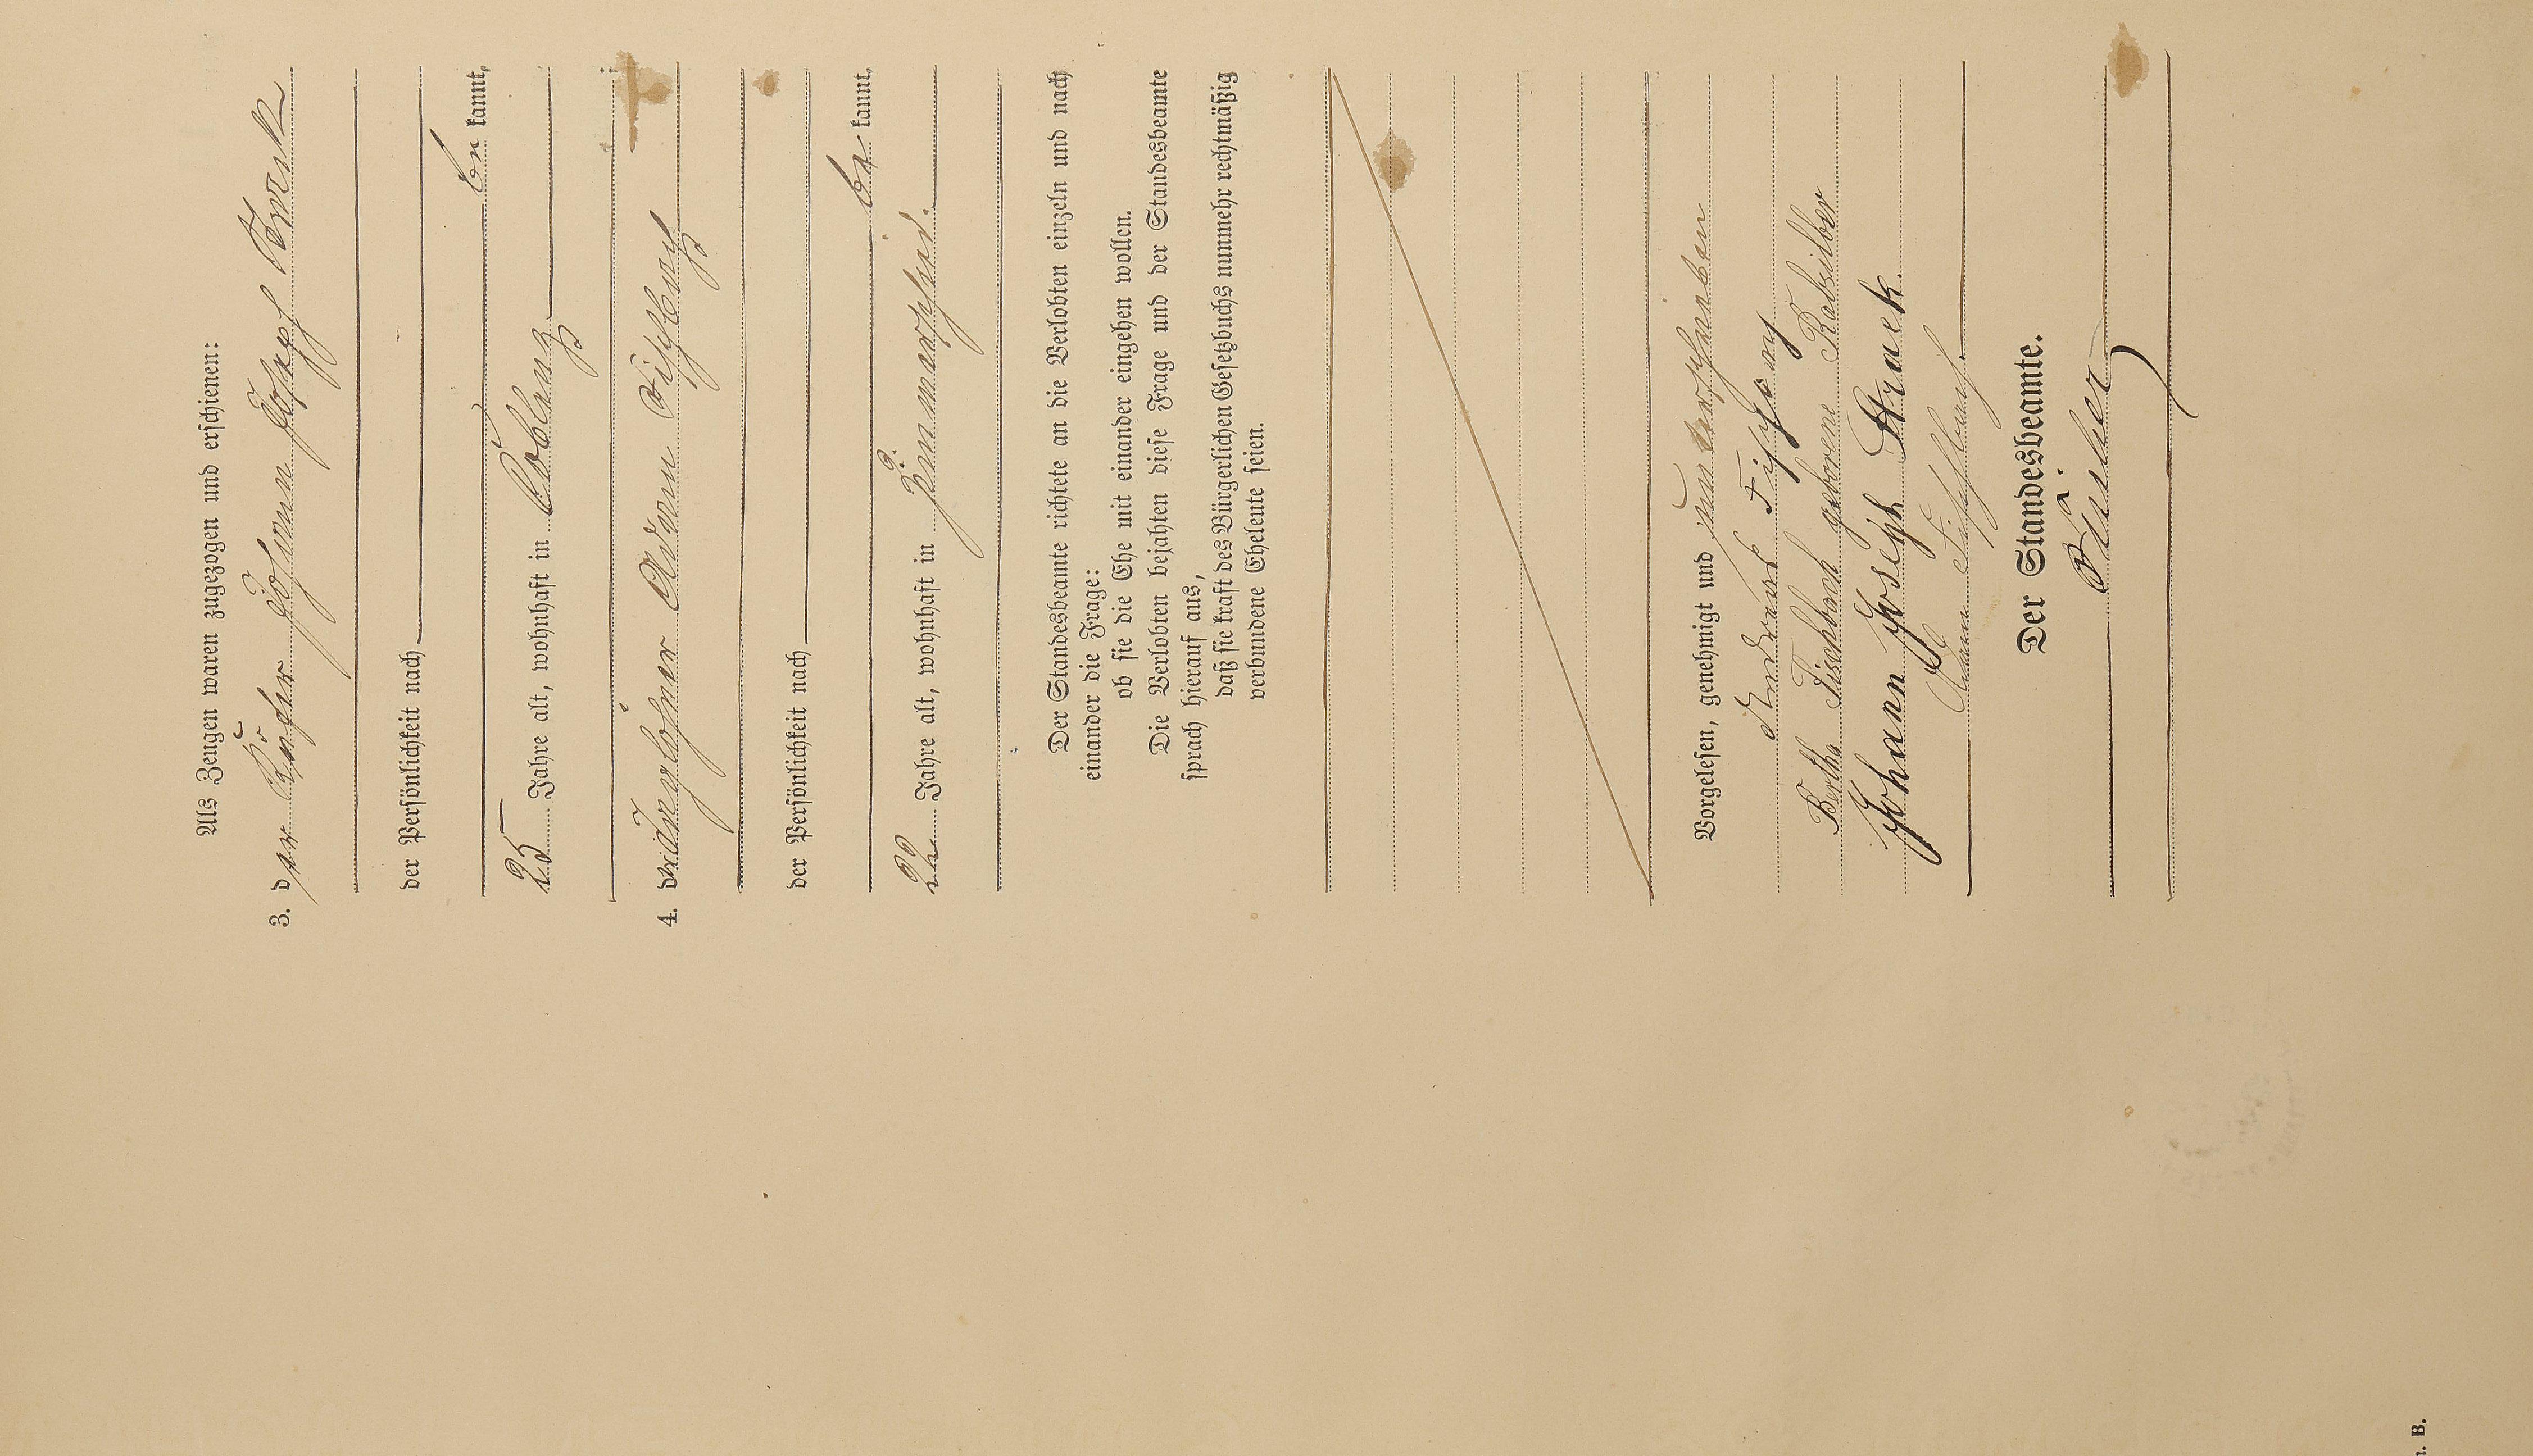 Als Zeugen waren zugezogen und erschienen:
3. der Küfer Johann Josef Strack
der Persönlichkeit nach
be kannt,
25 Jahre alt, wohnhaft in Coblenz
4. der Tagelöhner Adam Fischbach
der Persönlichkeit nach
be kannt,
22 Jahre alt, wohnhaft in
Der Standesbeamte richtete an die Verlobten einzeln und nach
einander die Frage:
ob sie die Ehe mit einander eingehen wollen.
Die Verlobten bejahten diese Frage und der Standesbeamte
sprach hierauf aus,
daß sie kraft des Bürgerlichen Gesetzbuchs nunmehr rechtmäßig
verbundene Eheleute seien.
Vorgelesen, genehmigt und unterschrieben
Bertha Fischbach geborene Rabsilber
Johann Joseph Strack.
Adam Fischbach.
Der Standesbeamte.
n. B.